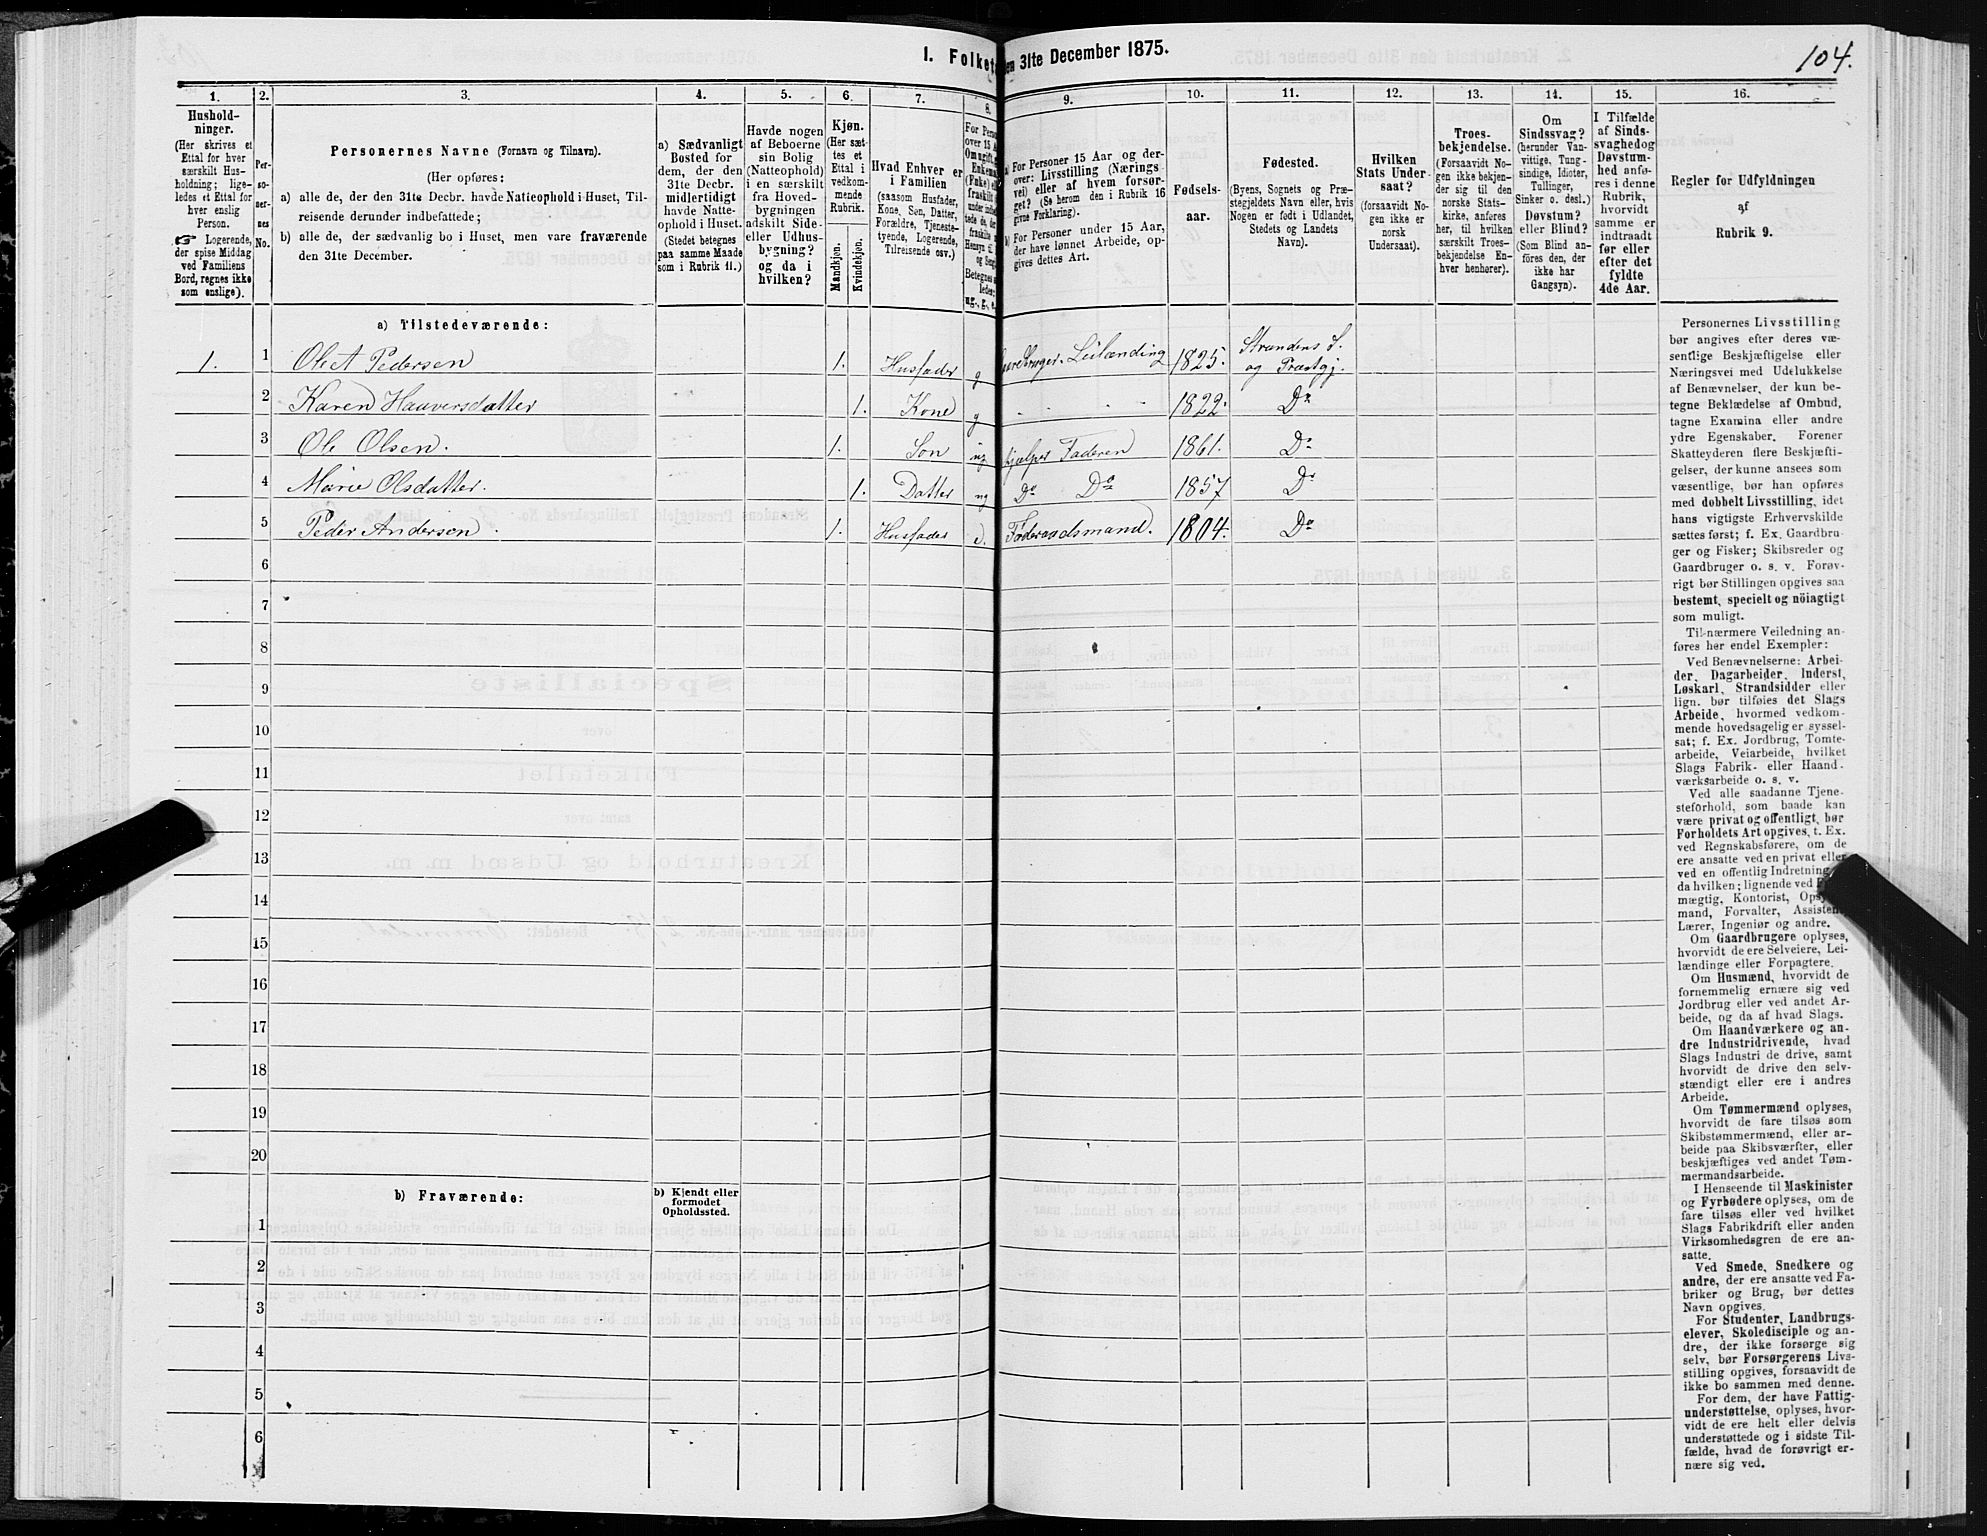 104.
I. Folket
en 31te December 1875.
1. 2. 3. 4. 5. 6. 7. 8. 9. 10. 11. 12. 13. 14. 15. 16.
Hushold-
ninger.
(Her skrives et
Ettal for hver
særskilt Hus-
holdning; lige-
ledes et Ettal for
hver enslig
Person.
☞ Logerende,
der spise Middag
ved Familiens
Bord, regnes ikke
som enslige).
Per-
so-
ner-
nes
No.
Personernes Navne (Fornavn og Tilnavn).
(Her opføres:
a) alle de, der den 31te Decbr. havde Natteophold i Huset, Til-
reisende derunder indbefattede;
b) alle de, der sædvanlig bo i Huset, men vare fraværende
den 31te December.
a) Sædvanligt
Bosted for
dem, der den
31te Decbr.
midlertidigt
havde Natte-
ophold i Huset.
(Stedet betegnes
paa samme Maade
som i Rubrik 11.)
Havde nogen
af Beboerne
sin Bolig
(Natteophold)
i en særskilt
fra Hoved-
bygningen
adskilt Side-
eller Udhus-
bygning?
og da i
hvilken?
Kjøn.
(Her sæt-
tes et
Ettal i
vedkom-
mende
Rubrik.
Mandkjøn.
Kvindekjøn.
Hvad Enhver er
i Familien
(saasom Husfader,
Kone, Søn, Datter,
Forældre, Tjeneste-
tyende, Logerende,
Tilreisende osv.)
For Pers
over 15 A
Om ugift, g
Enkema
(Enke) e
fraskilt
ug., g., e.
a) For Personer 15 Aar og der-
over: Livsstilling (Nærings-
vei) eller af hvem forsør-
get? (Se herom den i Rubrik 16
givne Forklaring).
b) For Personer under 15 Aar,
der have lønnet Arbeide, op-
gives dettes Art.
Fødsels-
aar.
Fødested.
(Byens, Sognets og Præ-
stegjeldets Navn eller, hvis
Nogen er født i Udlandet,
Stedets og Landets
Navn).
Hvilken
Stats Under-
saat?
(forsaavidt No-
gen ikke er
norsk
Undersaat).
Troes-
bekjendelse.
(Forsaavidt No-
gen ikke bekjen-
der sig til den
norske Stats-
kirke, anføres
her, til hvilken
særskilt Troes-
bekjendelse En-
hver henhører).
Om
Sindssvag?
(herunder Van-
vittige, Tung-
sindige, Idioter,
Tullinger,
Sinker o. desl.)
Døvstum?
eller Blind?
(Som Blind an-
føres den, der
ikke har
Gangsyn).
I Tilfælde
af Sinds-
svaghed og
Døvstum-
hed anfø-
res i denne
Rubrik,
hvorvidt
samme er
indtraadt
før eller
efter det
fyldte
4de Aar.
Regler for Udfyldningen
af
Rubrik 9.
a) Tilstedeværende:
1. 1 Ole A Pedersen 1. Husfader g Gaardbruger. Leilænding 1825. Strandens S. og Præstgj.
2 Karen Haaversdatter 1. Kone g 1822. Do
3 Ole Olsen. 1. Søn ug hjælper Faderen 1861. Do
4 Marie Olsdatter. 1. Datter ug Do Do 1857 Do
5 Peder Andersen. 1. Husfader e. Føderaadsmand. 1804. Do
6
7
8
9
10
11
12
13
14
15
16
17
18
19
20
b) Fraværende:
b) Kjendt eller
formodet
Opholdssted.
1
2
3
4
5
6
Personernes Livsstilling
bør angives efter deres væ-
sentlige Beskjæftigelse eller
Næringsvei med Udelukkelse
af Benævnelser, der kun be-
tegne Beklædelse af Ombud,
tagne Examina eller andre
ydre Egenskaber. Forener
Skatteyderen flere Beskjæfti-
gelser, der kunne ansees som
væsentlige, bør han opføres
med dobbelt Livsstilling, idet
hans vigtigste Erhvervskilde
sættes først; f. Ex. Gaardbru-
ger og Fisker; Skibsreder og
Gaardbruger o. s. v. Forøv-
rigt bør Stillingen opgives saa
bestemt, specielt og nöiagtigt
som muligt.
Til nærmere Veiledning an-
føres her endel Exempler:
Ved Benævnelserne: Arbei-
der, Dagarbeider, Inderst,
Løskarl, Strandsidder eller
lign. bør tilføies det Slags
Arbeide, hvormed vedkom-
mende hovedsagelig er syssel-
sat; f. Ex. Jordbrug, Tomte-
arbeide, Veiarbeide, hvilket
Slags Fabrik- eller Haand-
værksarbeide o. s. v.
Ved alle saadanne Tjene-
steforhold, som baade kan
være privat og offentligt, bør
Forholdets Art opgives, t. Ex.
ved Regnskabsførere, om de
ere ansatte ved en privat eller
ved en offentlig Indretning
da hvilken; lignende ved
mægtig, Kontorist, Opsyns-
mand, Forvalter, Assistent,
Lærer, Ingeniør og andre.
Om Gaardbrugere oplyses,
hvorvidt de ere Selveiere, Lei-
lændinge eller Forpagtere.
Om Husmænd, hvorvidt de
fornemmelig ernære sig ved
Jordbrug eller ved andet Ar-
beide, og da af hvad Slags.
Om Haandværkere og an-
dre Industridrivende, hvad
Slags Industri de drive, samt
hvorvidt de drive den selv-
stændigt eller ere i andres
Arbeide.
Om Tømmermænd oplyses,
hvorvidt de fare tilsøs som
Skibstømmermænd, eller ar-
beide paa Skibsværfter, eller
beskjæftiges ved andet Tøm-
mermandsarbeide.
I Henseende til Maskinister
og Fyrbødere oplyses, om de
fare tilsøs eller ved hvilket
Slags Fabrikdrift eller anden
Virksomhedsgren de ere an-
satte.
Ved Smede, Snedkere og
andre, der ere ansatte ved Fa-
briker og Brug, bør dettes
Navn opgives.
For Studenter, Landbrugs-
elever, Skoledisciple og an-
dre, der ikke forsørge sig
selv, bør Forsørgerens Livs-
stilling opgives, forsaavidt de
ikke bo sammen med denne.
For dem, der have Fattig-
understøttelse, oplyses, hvor-
vidt de ere helt eller delvis
understøttede og i sidste Til-
fælde, hvad de forøvrigt er-
nære sig ved.